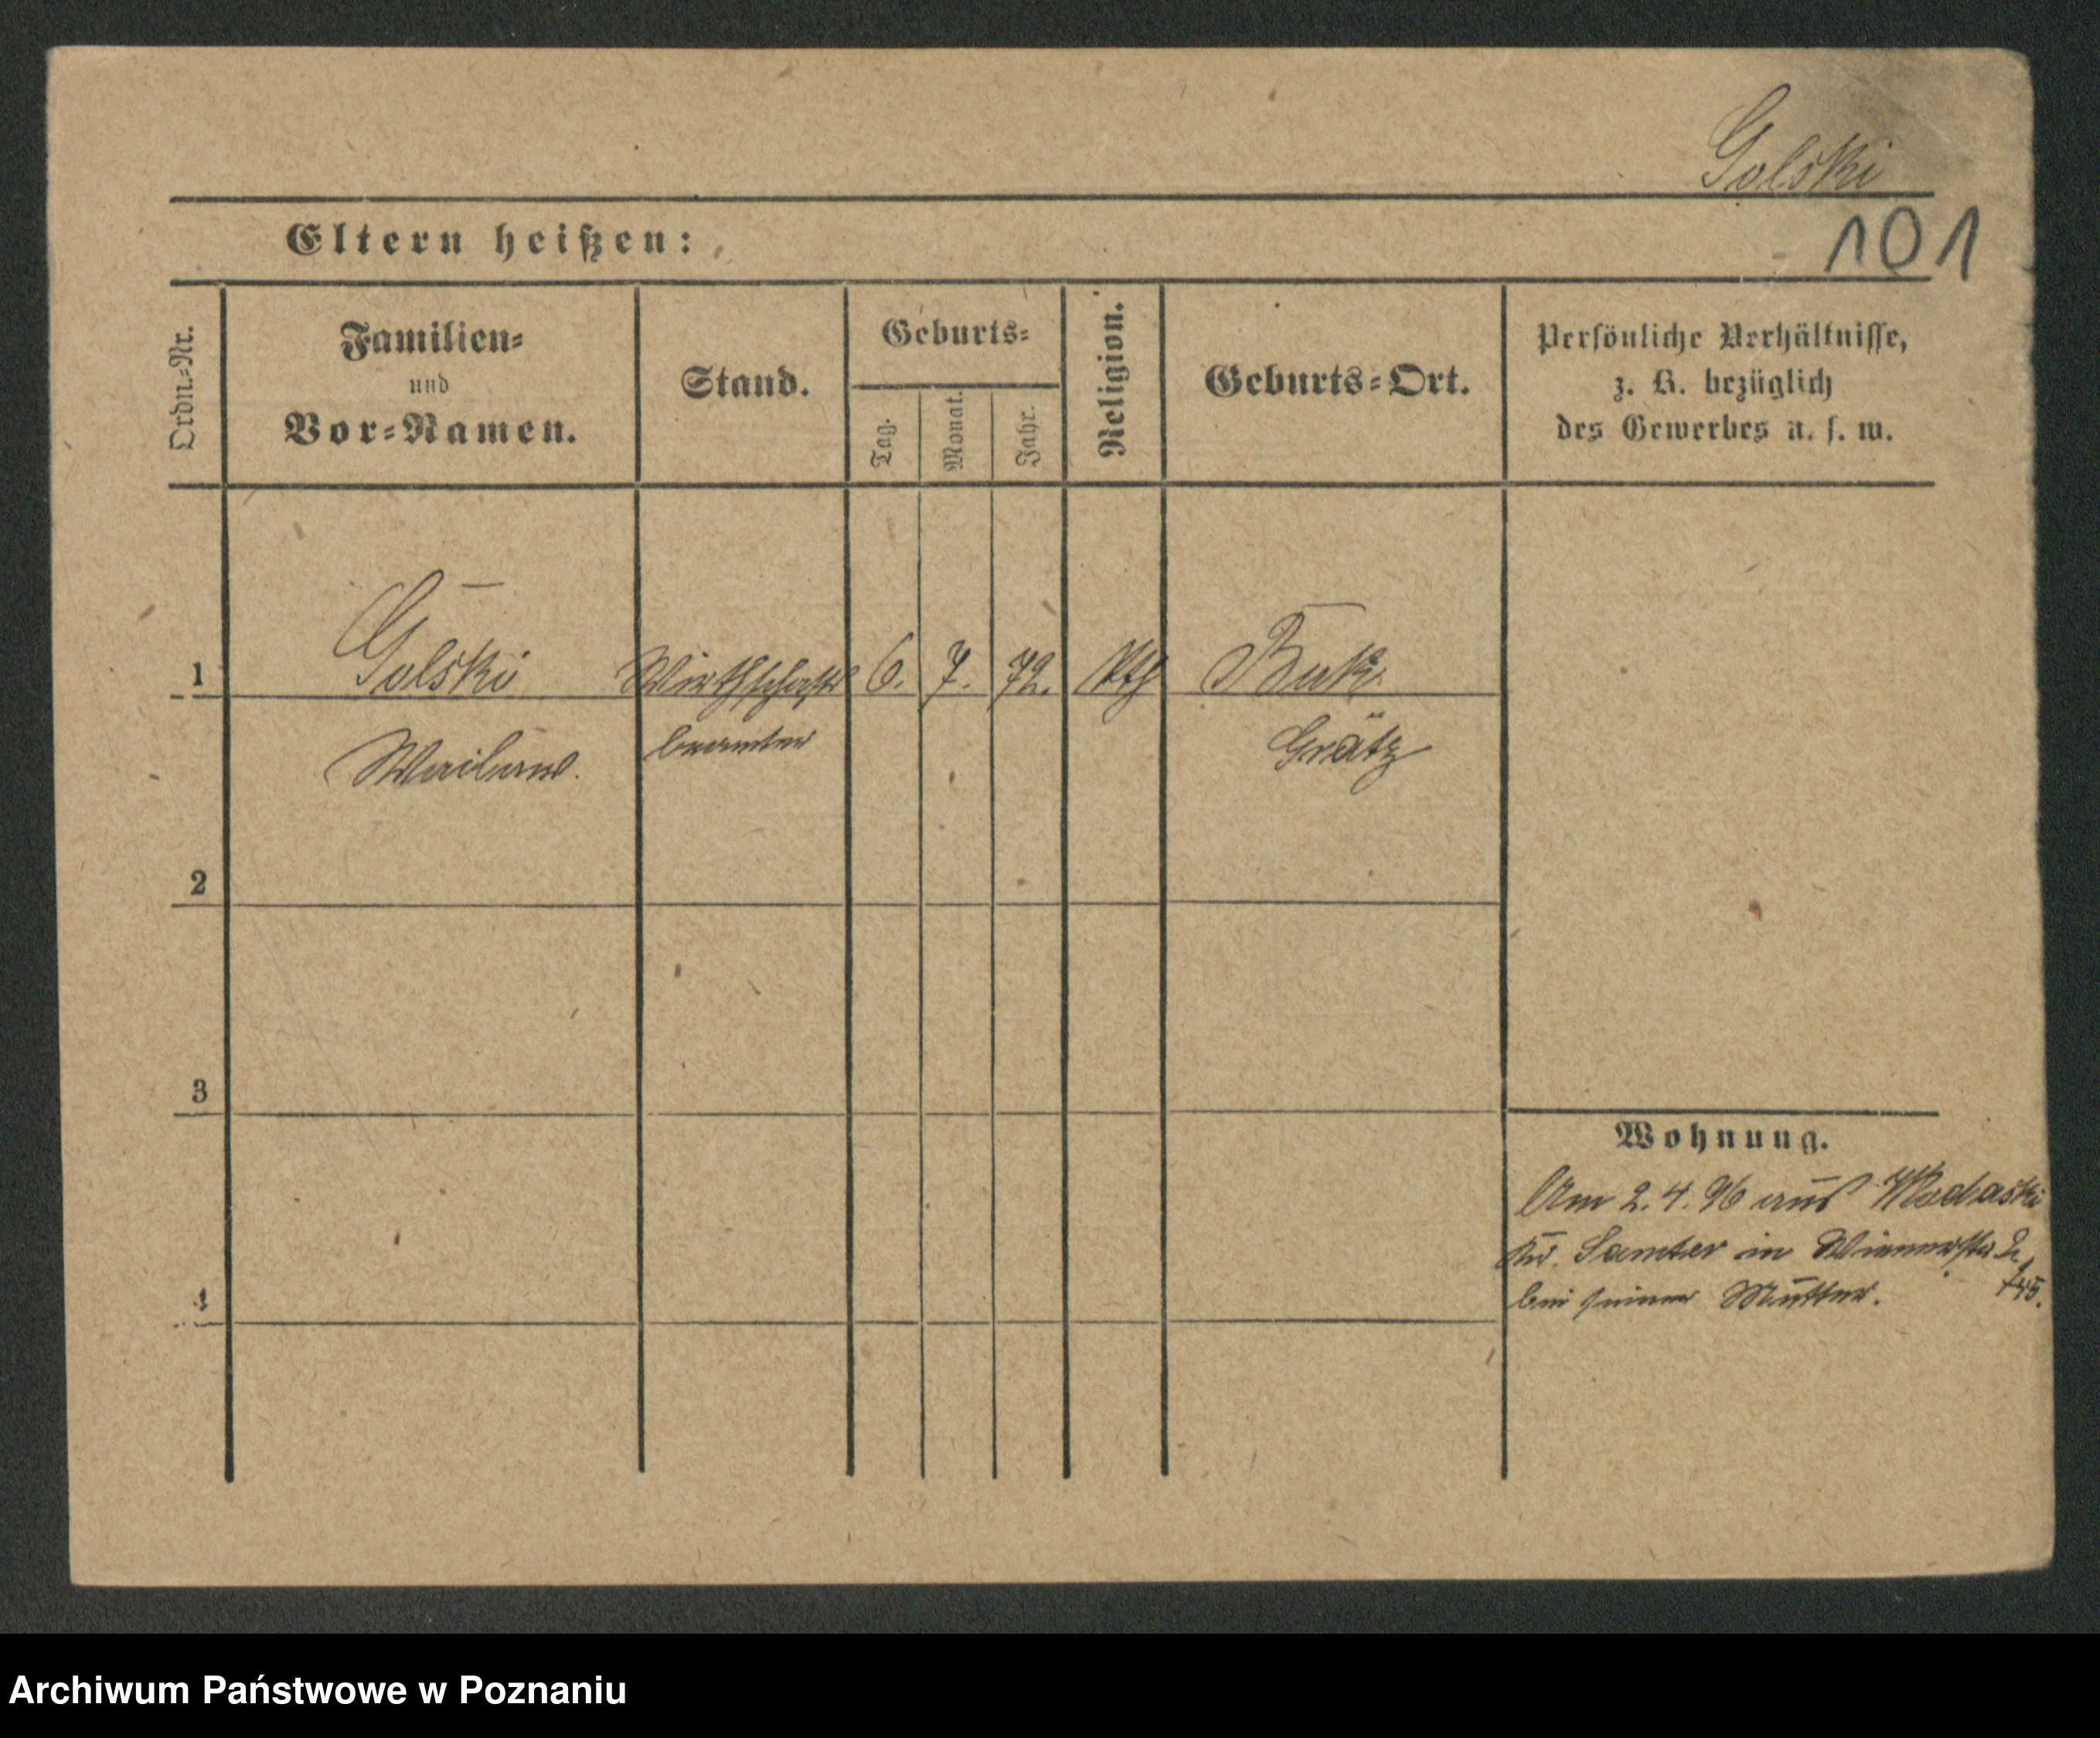 Golski
Eltern heißen:
101
Ordn.-Nr.
Familien-
und
Vor-Namen.
Stand.
Geburts-
Tag.
Monat.
Jahr.
Religion.
Geburts-Ort.
Persönliche Verhältnisse,
z. B. bezüglich
des Gewerbes u. s. w.
1
Golski
Wirthschafts
6.
7.
72.
Kth
Buk.
beamter
Grätz
2
3
4
Wohnung.
Am 2. 4. 96 aus
Kr. Samter in
bei seiner Mutter.
Archiwum Państwowe w Poznaniu